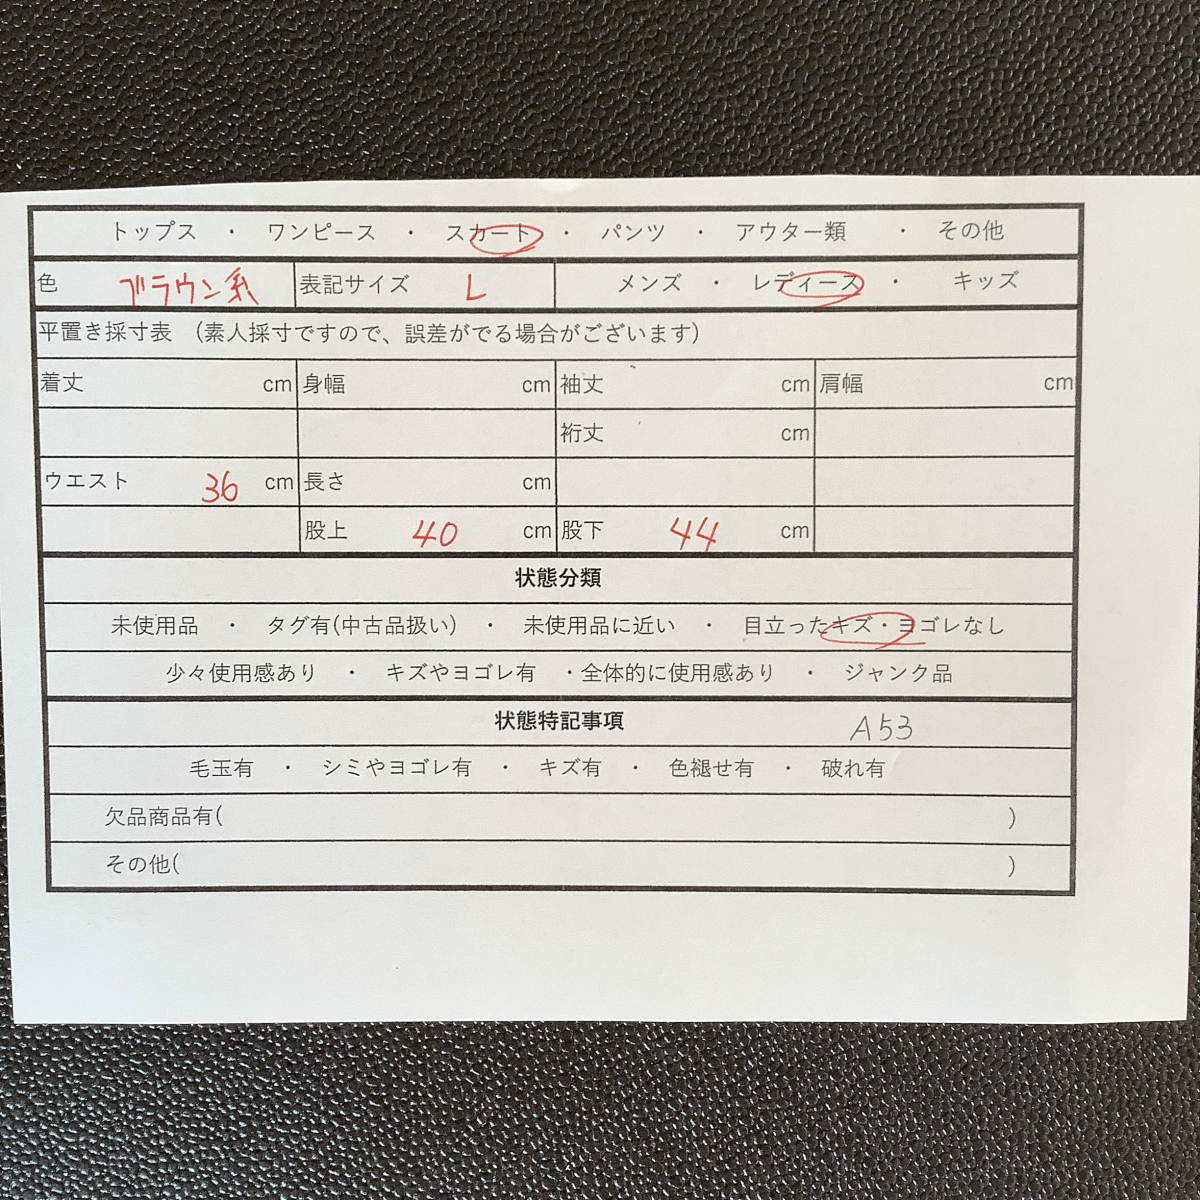 トップス ・ ワンピース ・ スカート ・ パンツ ・ アウター類 ・ その他
色 ブラウン系 表記サイズ L メンズ ・ レディース ・ キッズ
平置き採寸表 (素人採寸ですので、誤差がでる場合がございます)
着丈 cm 身幅 cm 袖丈 cm 肩幅 cm
裄丈 cm
ウエスト 36 cm 長さ cm
股上 40 cm 股下 44 cm
状態分類
未使用品 ・ タグ有(中古品扱い) ・ 未使用品に近い ・ 目立ったキズ・ヨゴレなし
少々使用感あり ・ キズやヨゴレ有 ・全体的に使用感あり ・ ジャンク品
状態特記事項 A53
毛玉有 ・ シミやヨゴレ有 ・ キズ有 ・ 色褪せ有 ・ 破れ有
欠品商品有( )
その他( )